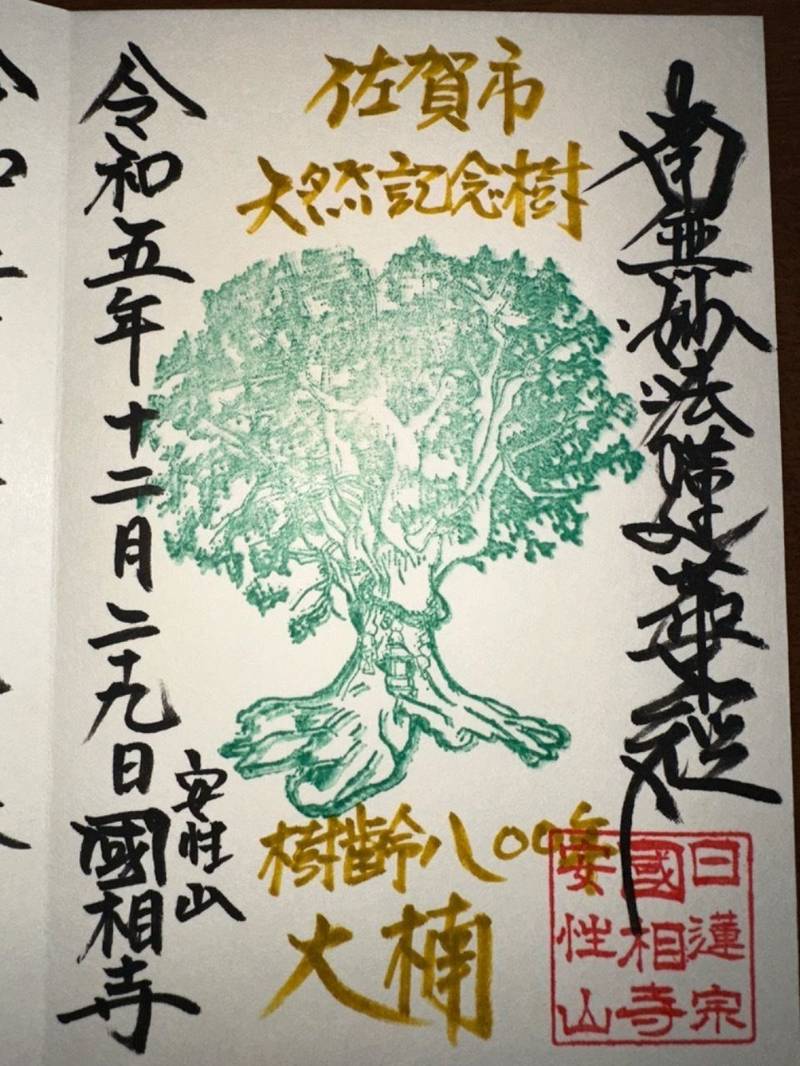 南無妙法蓮華経
佐賀市
天然記念樹
樹齢八〇〇年
大楠
令和五年十二月二十九日
安性山
國相寺
日蓮宗
國相寺
安性山